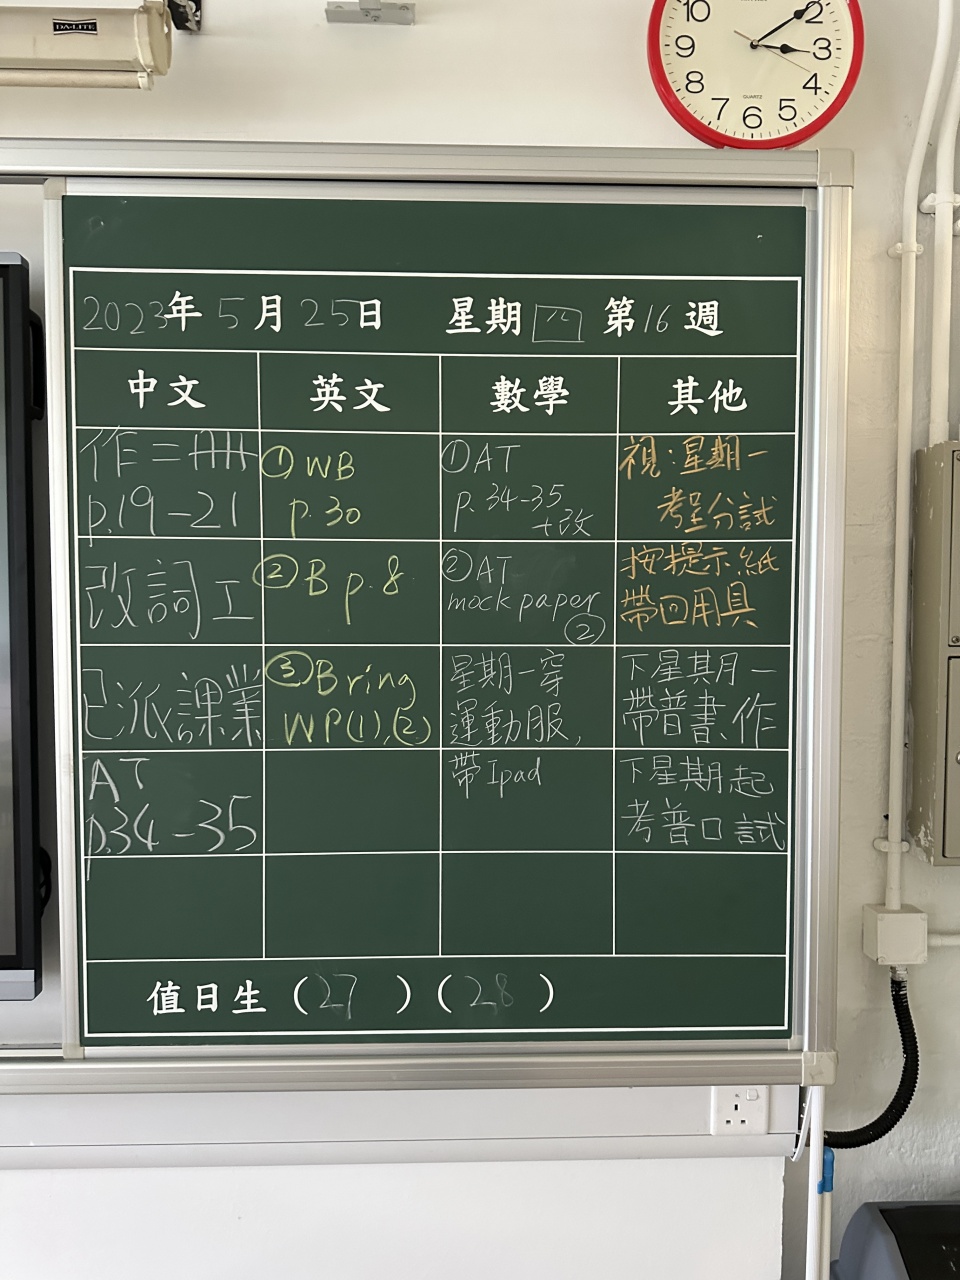 DA-LITE
10 2
9 3
8 4
7 6 5
QUARTZ
2023年5月25日 星期四 第16週
中文 英文 數學 其他
作二冊
p.19-21
改詞工
已派課業
AT
p.34-35
① WB
p.30
② B p.8
③ Bring
WP(1),(2)
① AT
p.34-35
+改
② AT
mock paper
②
星期一穿
運動服,
帶Ipad
視:星期一
考呈分試
按提示紙
帶回用具
下星期一
帶普書、作
下星期起
考普口試
值日生(27)(28)